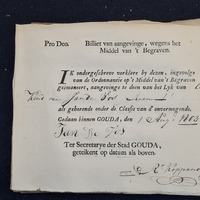 Pro Deo. Billiet van aangevinge, wegens het
Middel van 't Begraven.
IK ondergeschreve verklare by dezen, ingevolge
van de Ordonnantie op 't Middel van't Begraven
geëmaneert, aangevinge te doen van het Lyk van
Kind van
als gehorende onder de Classis van d'onvermogende.
Gedaan binnen GOUDA, den 1 Aug 1803
Jan De Vos
Ter Secretarye der Stad GOUDA,
geteikent op datum als boven.